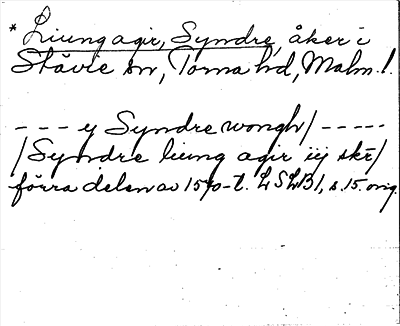 * Liung agir, Syndre, åker i
Stävie sn, Torna hd, Malm. l.
- - - y Syndre wongh / - - - - -
/ Syndre liung agir iij skr̄ /
förra delen av 1570-t. LSLB 1, s. 15. orig.